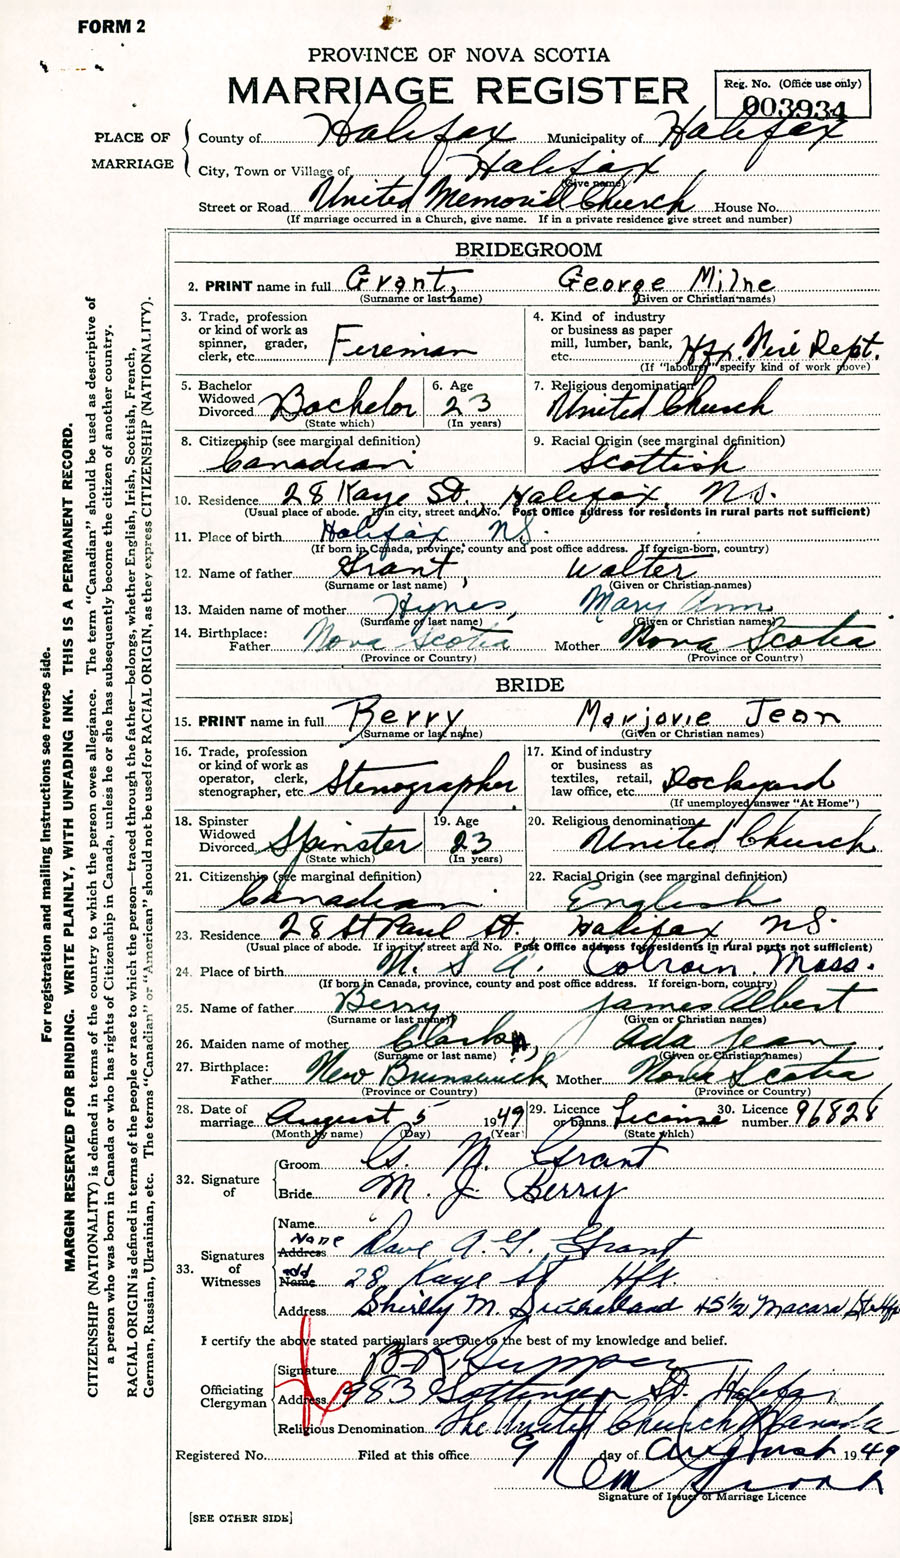 FORM 2
PROVINCE OF NOVA SCOTIA
MARRIAGE REGISTER
Reg. No. (Office use only)
003934
PLACE OF MARRIAGE
County of Halifax Municipality of Halifax
City, Town or Village of Halifax
(Give name)
Street or Road United Memorial Church House No.
(If marriage occurred in a Church, give name. If in a private residence give street and number)
BRIDEGROOM
2. PRINT name in full Grant, George Milne
(Surname or last name) (Given or Christian names)
3. Trade, profession or kind of work as spinner, grader, clerk, etc. Fireman
4. Kind of industry or business as paper mill, lumber, bank, etc. Hfx. Fire Dept.
(If "labourer" specify kind of work above)
5. Bachelor Widowed Divorced Bachelor
(State which)
6. Age 23
(In years)
7. Religious denomination United Church
8. Citizenship (see marginal definition) Canadian
9. Racial Origin (see marginal definition) Scottish
10. Residence 28 Kaye St., Halifax, N.S.
(Usual place of abode. If in city, street and No. Post Office address for residents in rural parts not sufficient)
11. Place of birth Halifax NS
(If born in Canada, province, county and post office address. If foreign-born, country)
12. Name of father Grant, Walter
(Surname or last name) (Given or Christian names)
13. Maiden name of mother Hynes, Mary Ann
(Surname or last name) (Given or Christian names)
14. Birthplace: Father Nova Scotia Mother Nova Scotia
(Province or Country) (Province or Country)
BRIDE
15. PRINT name in full Berry, Marjorie Jean
(Surname or last name) (Given or Christian names)
16. Trade, profession or kind of work as operator, clerk, stenographer, etc. Stenographer
17. Kind of industry or business as textiles, retail, law office, etc. Dockyard
(If unemployed answer "At Home")
18. Spinster Widowed Divorced Spinster
(State which)
19. Age 23
(In years)
20. Religious denomination United Church
21. Citizenship (see marginal definition) Canadian
22. Racial Origin (see marginal definition) English
23. Residence 28 St Paul St. Halifax NS.
(Usual place of abode. If in city, street and No. Post Office address for residents in rural parts not sufficient)
24. Place of birth U. S. A. Colrain. Mass.
(If born in Canada, province, county and post office address. If foreign-born, country)
25. Name of father Berry James Albert
(Surname or last name) (Given or Christian names)
26. Maiden name of mother Clark, Ada Jean
(Surname or last name) (Given or Christian names)
27. Birthplace: Father New Brunswick Mother Nova Scotia
(Province or Country) (Province or Country)
28. Date of marriage August 5 1949
(Month by name) (Day) (Year)
29. Licence or banns License
(State which)
30. Licence number 96828
32. Signature of
Groom G. M. Grant
Bride M. J. Berry
33. Signatures of Witnesses
Name
Name Address Dave A. G. Grant
add Name 28 Kaye St Hfx.
Address Shirley M. Sutherland 45½ Macara St. Hfx
I certify the above stated particulars are true to the best of my knowledge and belief.
Officiating Clergyman
Signature
Address 983 Gottingen St. Halifax
Religious Denomination The United Church Canada
Registered No. Filed at this office 9 day of August 1949
Signature of Issuer of Marriage Licence
[SEE OTHER SIDE]
For registration and mailing instructions see reverse side.
MARGIN RESERVED FOR BINDING. WRITE PLAINLY, WITH UNFADING INK. THIS IS A PERMANENT RECORD.
CITIZENSHIP (NATIONALITY) is defined in terms of the country to which the person owes allegiance. The term "Canadian" should be used as descriptive of
a person who was born in Canada or who has rights of Citizenship in Canada, unless he or she has subsequently become the citizen of another country.
RACIAL ORIGIN is defined in terms of the people or race to which the person—traced through the father—belongs, whether English, Irish, Scottish, French,
German, Russian, Ukrainian, etc. The terms "Canadian" or "American" should not be used for RACIAL ORIGIN, as they express CITIZENSHIP (NATIONALITY).